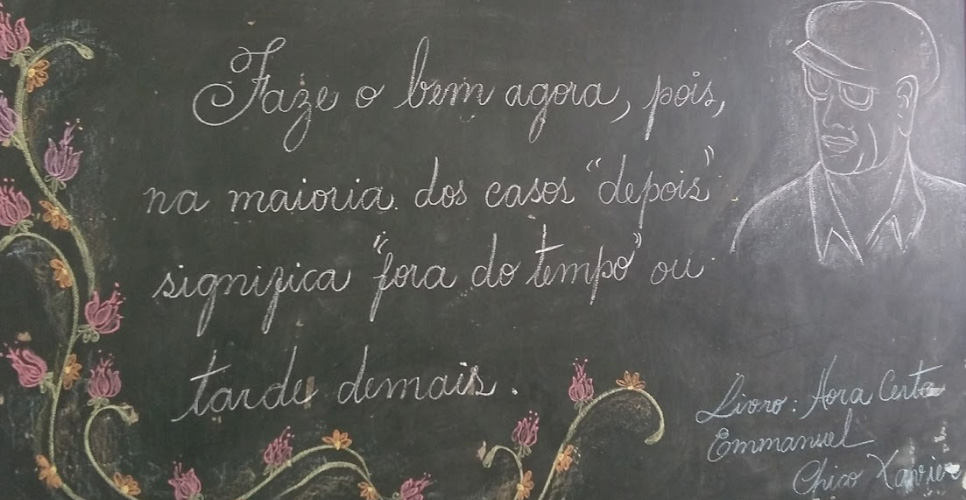 Faze o bem agora, pois,
na maioria dos casos "depois"
significa "fora do tempo" ou
tarde demais.
Livro: Hora Certa
Emmanuel
Chico Xavier